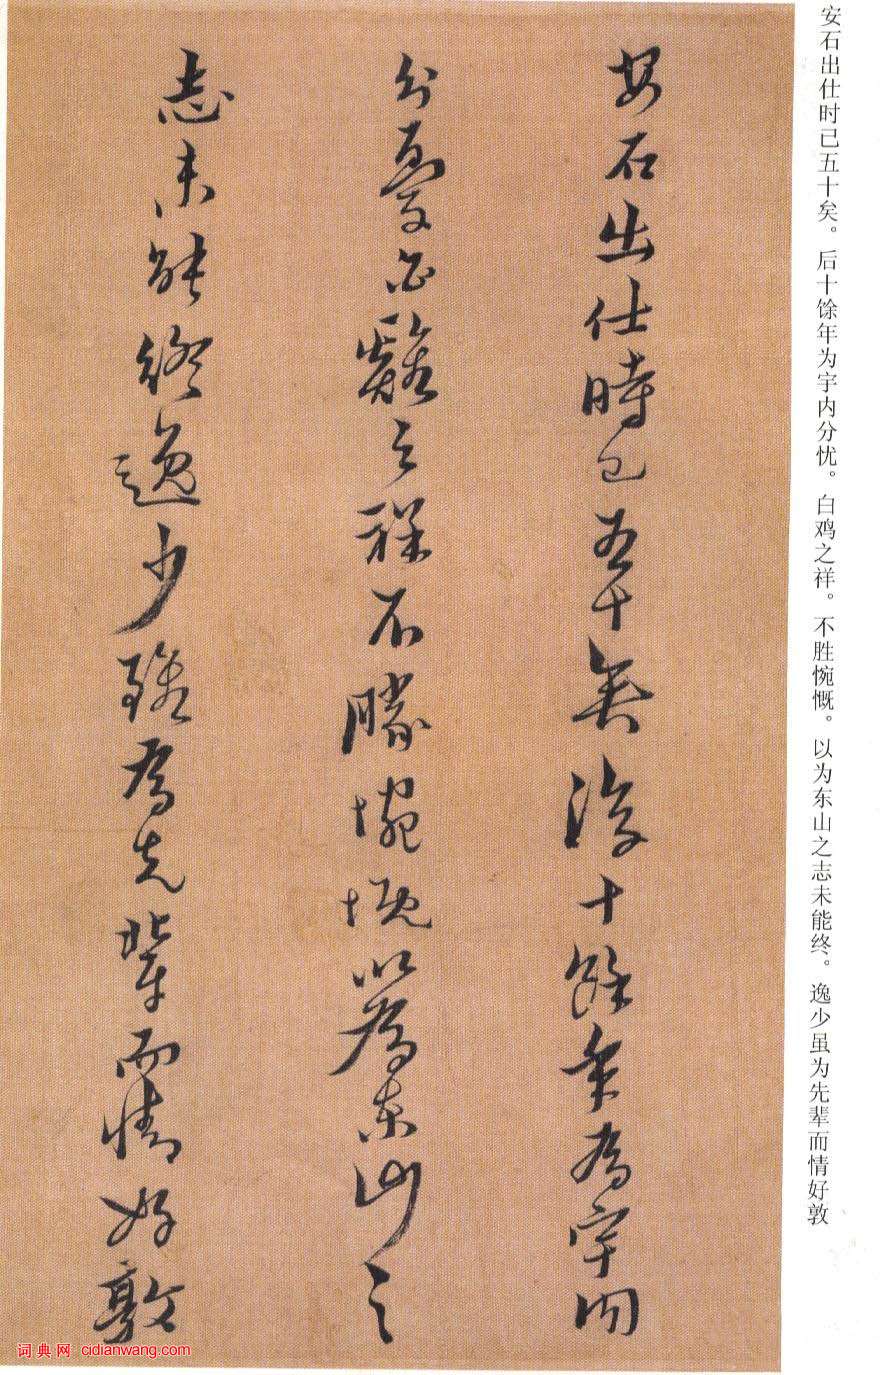 安石出仕時已五十矣後十餘年為宇内
分憂白雞之祥不勝惋慨以為東山之
志未能終逸少雖為先輩而情好敦
安石出仕时已五十矣。后十馀年为宇内分忧。白鸡之祥。不胜惋慨。以为东山之志未能终。逸少虽为先辈而情好敦
词典网 cidianwang.com